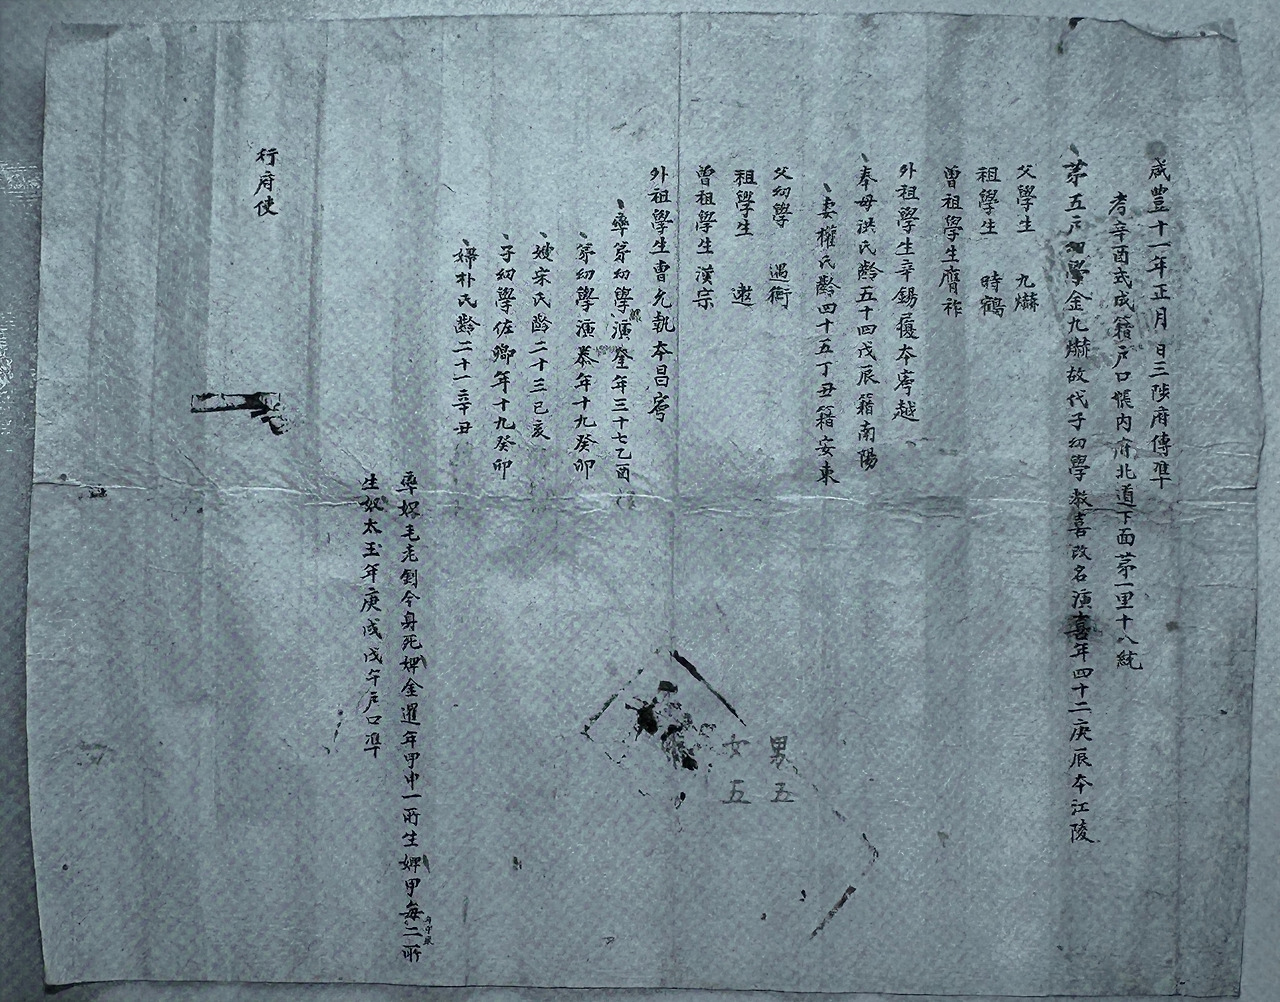 咸豐十一年正月 日三陟府傳準
考辛酉式成籍戶口帳內府北道下面苐一里十八統
苐五戶幼學金九爀故代子幼學教喜改名演喜年四十二庚辰本江陵
父學生 九爀
祖學生 時鶴
曾祖學生膺祚
外祖學生辛錫 本寧越
奉母洪氏齡五十四戊辰籍南陽
妻權氏齡四十五丁丑籍安東
父幼學 遇衡
祖學生
曾祖學生 漢宗
外祖學生曺允執本昌寧
率苐幼學演 年三十七乙酉
苐幼學演泰年十九癸卯
嫂宋氏齡二十三己亥
子幼學佐卿年十九癸卯
婦朴氏齡二十一辛丑
率奴毛老 今身死婢金暹年甲申一所生婢甲每二所
生奴太玉年庚戌戊午戶口準
男五
女五
行府使